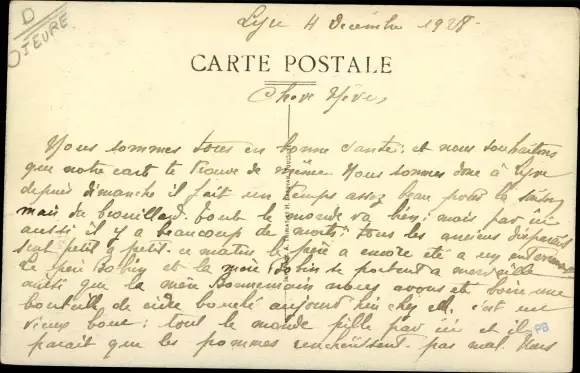 D
EURE
Lyre 4 Décembre 1928
CARTE POSTALE
Nous sommes tous en bonne santé et nous souhaitons
que notre carte te trouve de même. Nous sommes donc à Lyre
depuis dimanche il fait un temps assez beau pour la saison
mais du brouillard. tout le monde va bien; mais par ici
aussi il y a beaucoup de morts; tous les anciens disparaissent
petit à petit. ce matin le père a encore été a un enterrement
Le père Bobin et la mère Bobin se portent a merveille
ainsi que la mère nous avons été boire une
bouteille de cidre bouché aujourd'hui chez elle. c'est un
vieux ; tout le monde pille par ici et il
parait que les pommes renchérissent. pas mal. Nous
PB